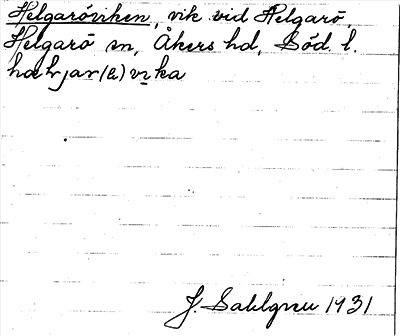 Helgaröviken, vik vid Helgarö,
Helgarö sn, Åkers hd, Söd. l.
J. Sahlgren 1931